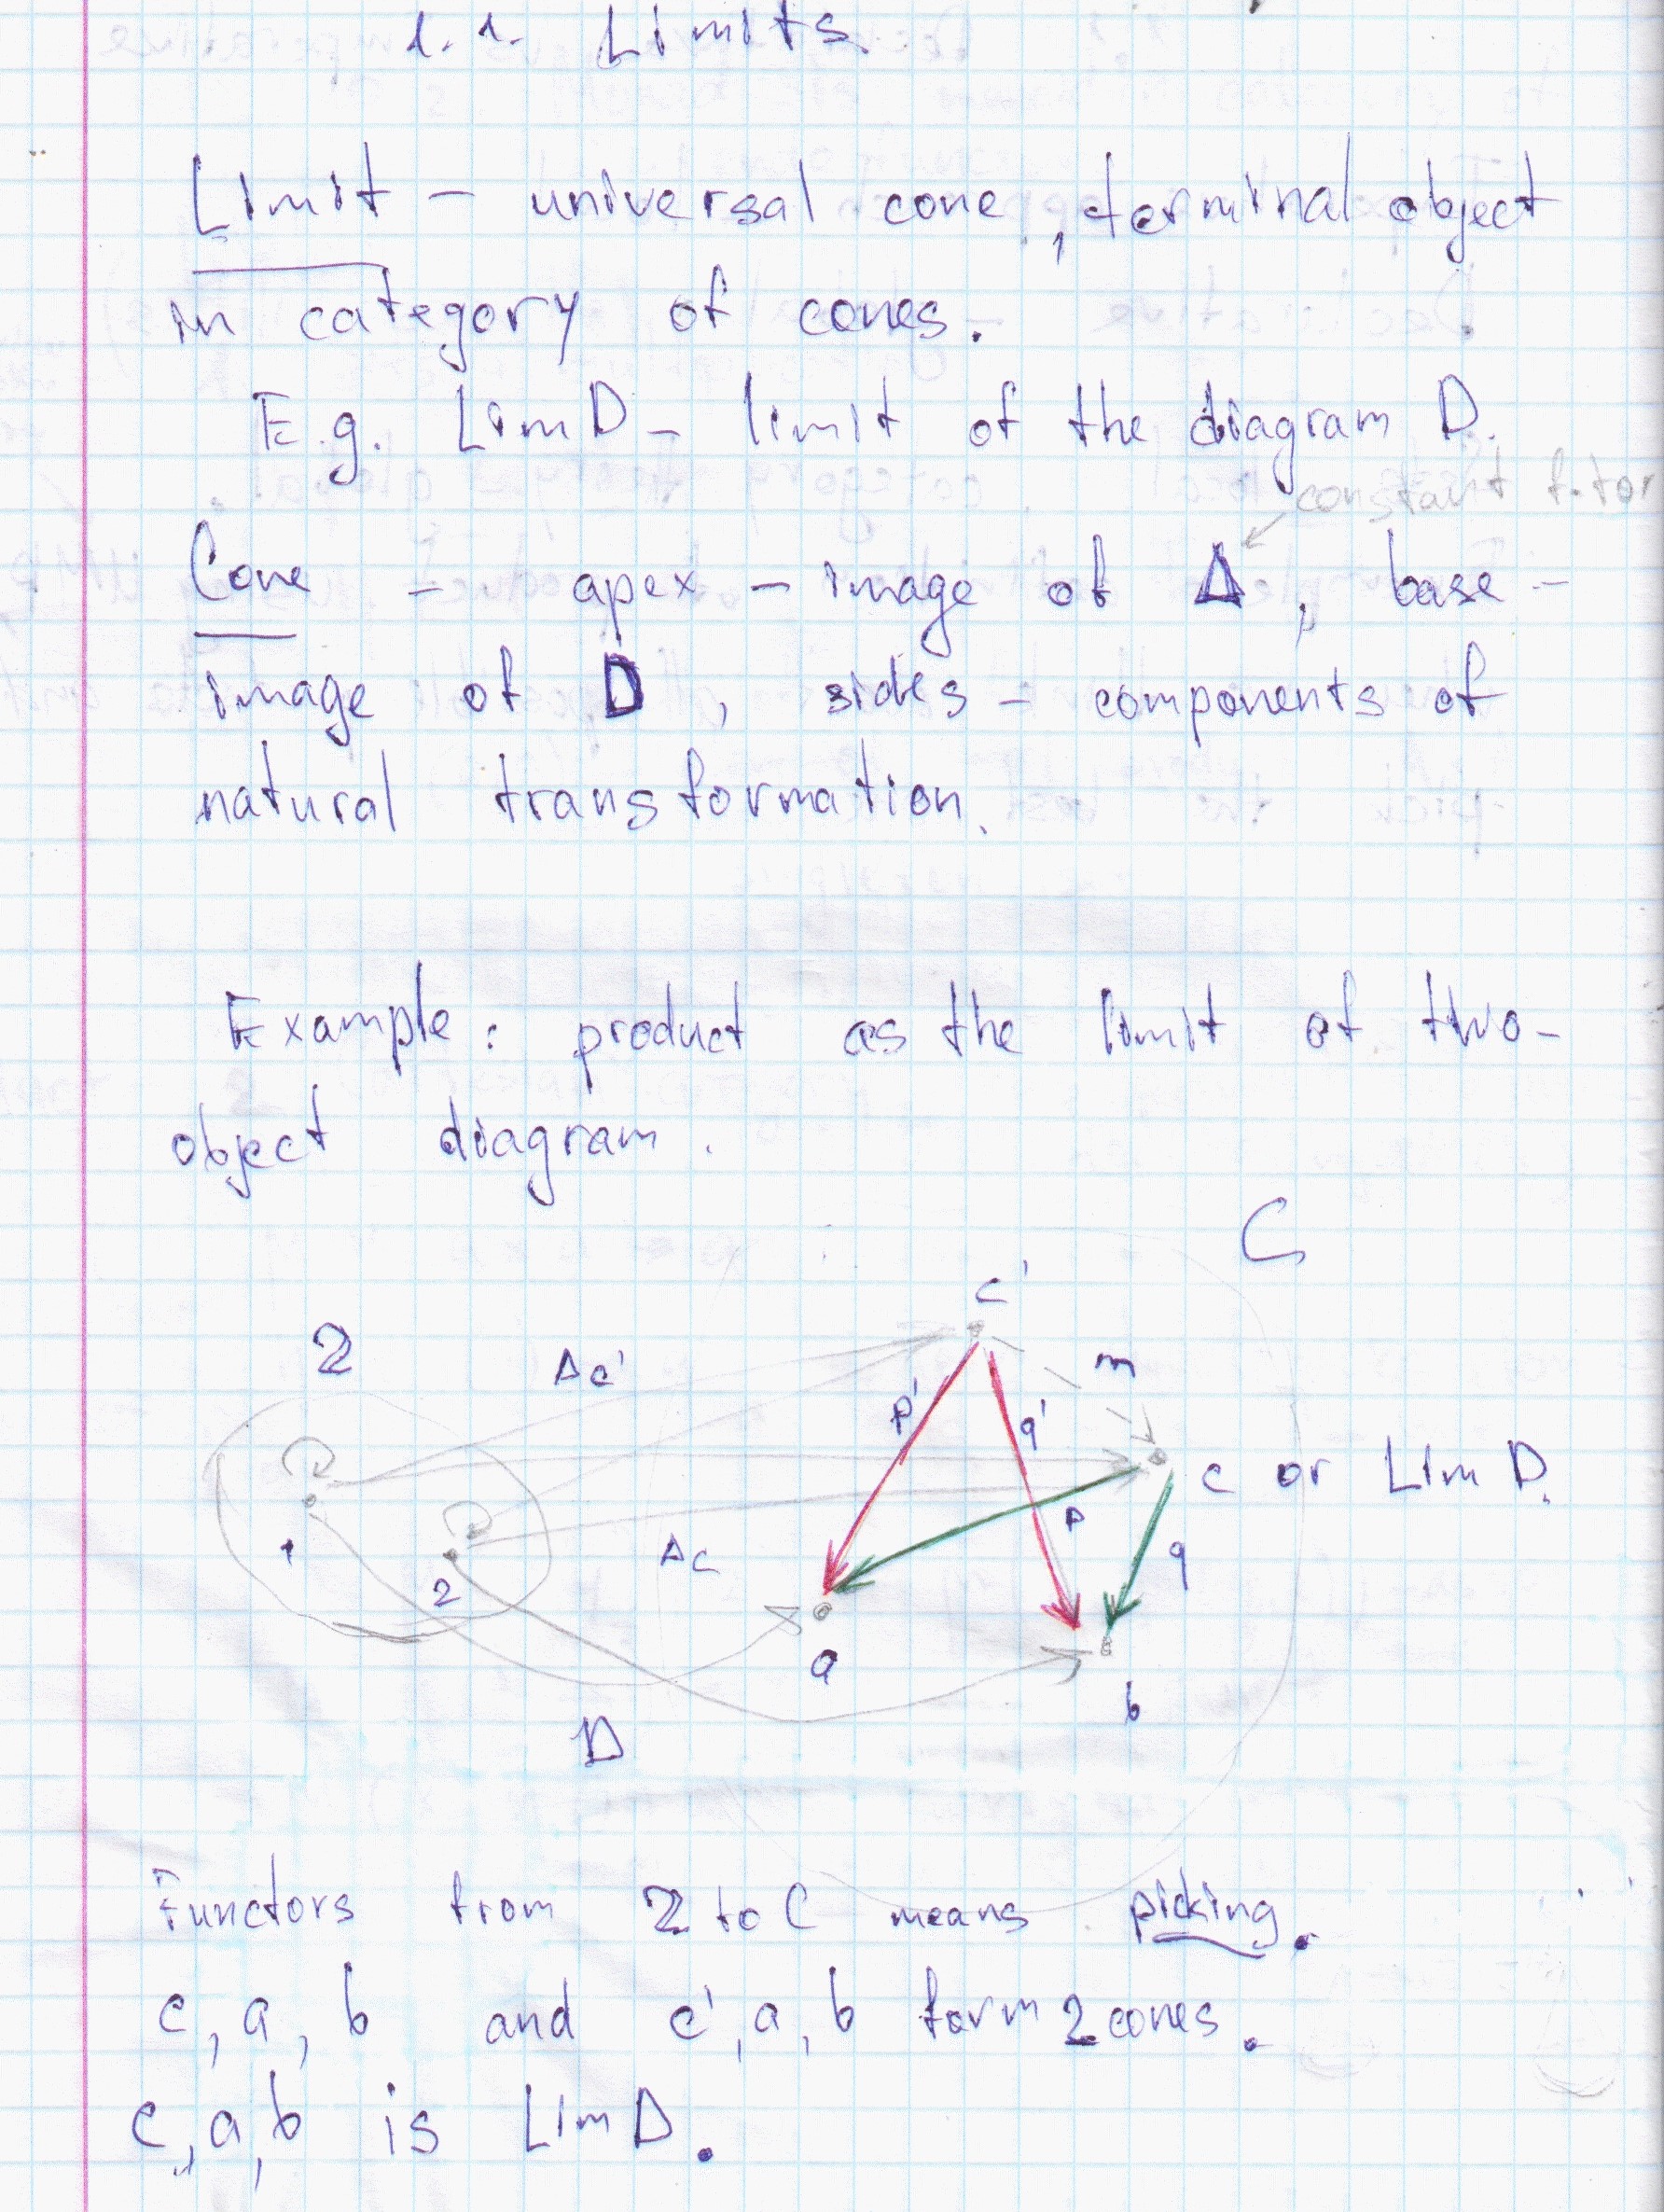 1.1. Limits.
Limit – universal cone, terminal object
in category of cones.
E.g. LimD – limit of the diagram D.
constant f-tor
Cone – apex – image of Δ, base –
image of D, sides – components of
natural transformation.
Example: product as the limit of two-
object diagram.
C
c'
2
Δc'
m
p'
q'
c or Lim D.
p
1
Δc
q
2
a
b
D
Functors from 2 to C means picking.
c, a, b and c', a, b form 2 cones.
c, a, b is LimD.